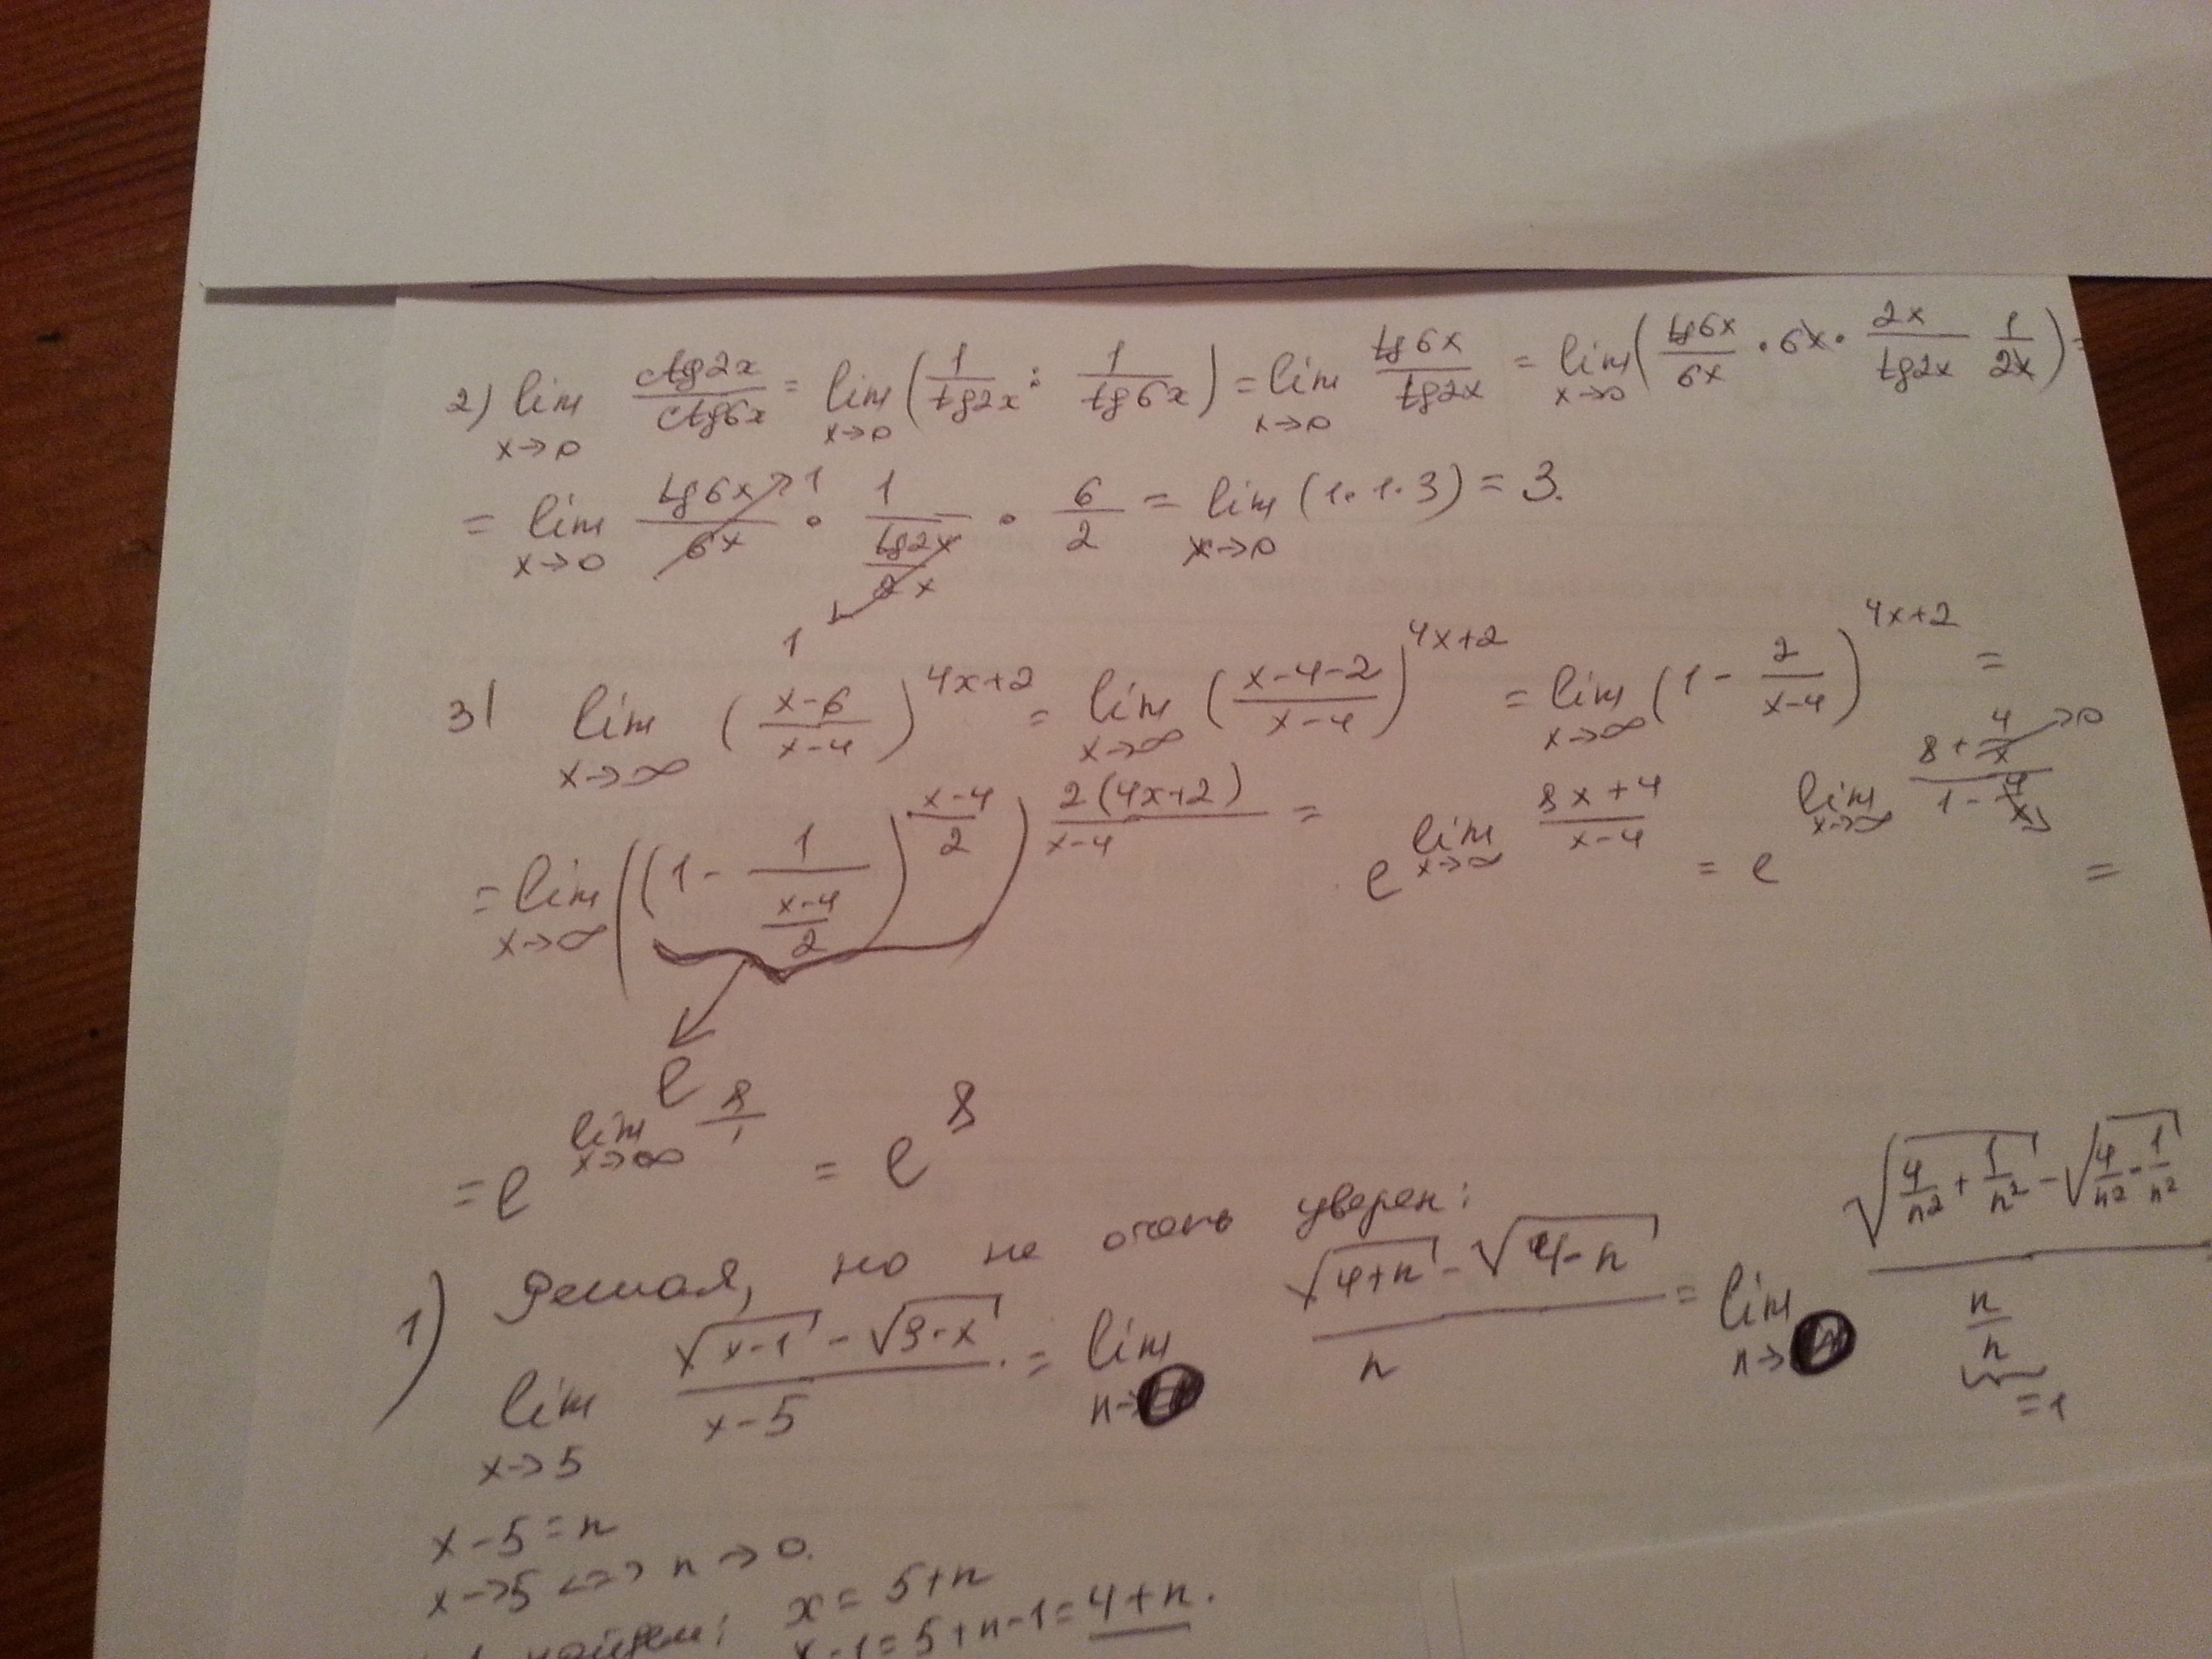 2) lim x→0 ctg2x/ctg6x = lim x→0 (1/tg2x : 1/tg6x) = lim x→0 tg6x/tg2x = lim x→0 (tg6x/6x · 6x · 2x/tg2x 1/2x) =
= lim x→0 tg6x/6x →1 · 1/(tg2x/2x) · 6/2 = lim x→0 (1·1·3) = 3.
1
3) lim x→∞ ((x-6)/(x-4))^(4x+2) = lim x→∞ ((x-4-2)/(x-4))^(4x+2) = lim x→∞ (1 - 2/(x-4))^(4x+2) =
= lim x→∞ ((1 - 1/((x-4)/2))^((x-4)/2))^(2(4x+2)/(x-4)) = e^(lim x→∞ (8x+4)/(x-4)) = e^(lim x→∞ (8 + 4/x →0)/(1 - 4/x)) =
e
= e^(lim x→∞ 8/1) = e^8
1) Решая, но не очень уверен:
lim x→5 (√(x-1) - √(9-x))/(x-5) = lim n→ (√(4+n) - √(4-n))/n = lim n→ (√(4/n² + 1/n²) - √(4/n² - 1/n²))/(n/n)
=1
x-5=n
x→5 <=> n→0.
найдем: x = 5+n
x-1=5+n-1=4+n.